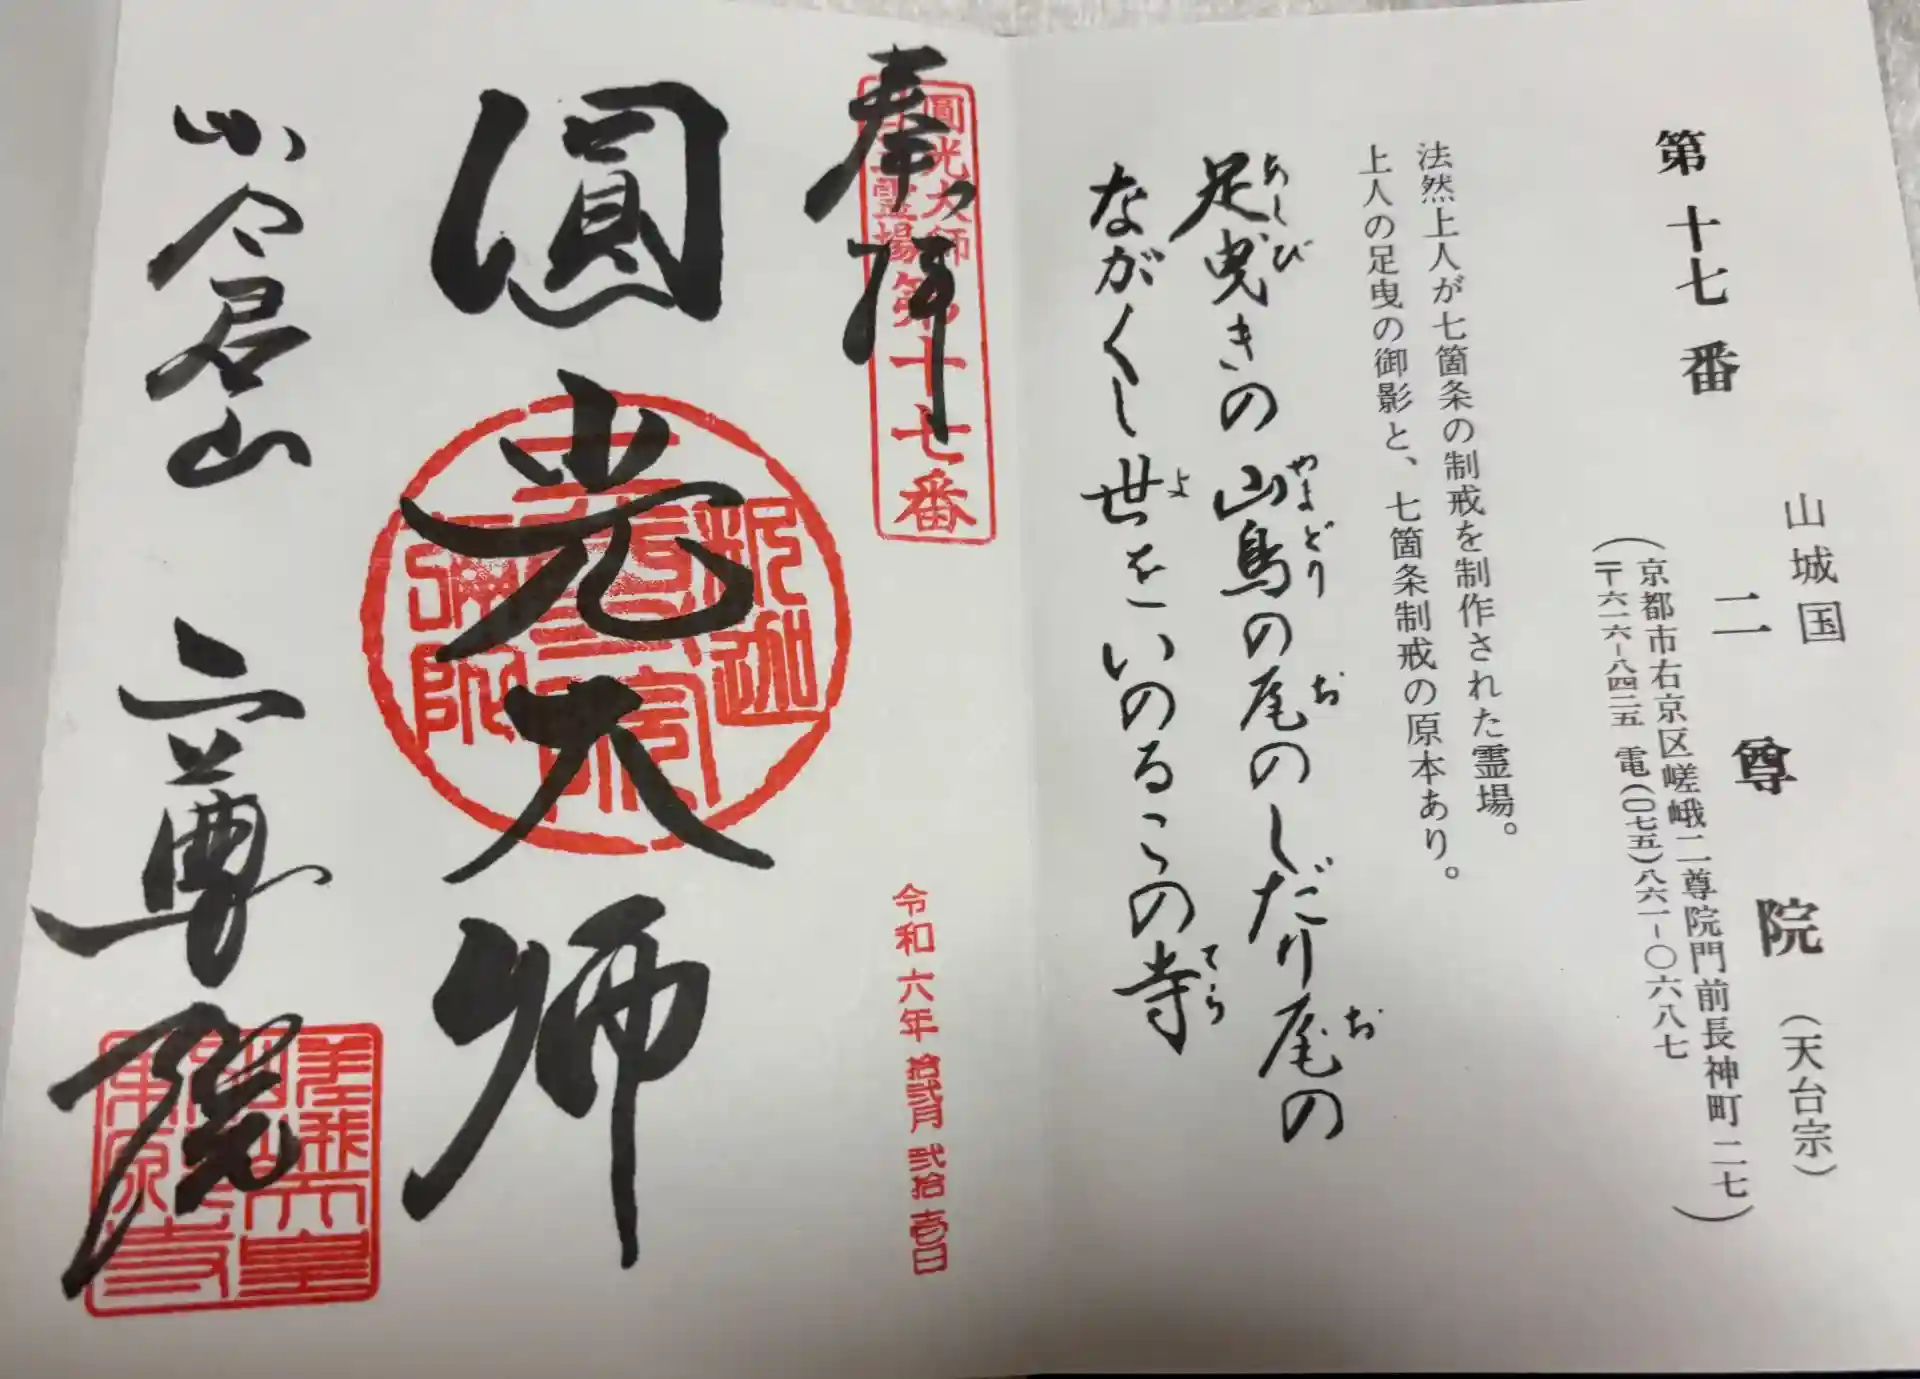 第十七番
山城国
二尊院(天台宗)
(京都市右京区嵯峨二尊院門前長神町二七
〒六一六-八四二五 電(〇七五)八六一-〇六八七)
法然上人が七箇条の制戒を制作された霊場。
上人の足曳の御影と、七箇条制戒の原本あり。
足曳きの山鳥の尾のしだり尾の
あしび
やまどり
お
お
ながくし世をいのるこの寺
よ
てら
奉拝
圓光大師
霊場第十七番
令和六年拾弐月弐拾壱日
圓光大師
釈迦
弥陀
小倉山 二尊院